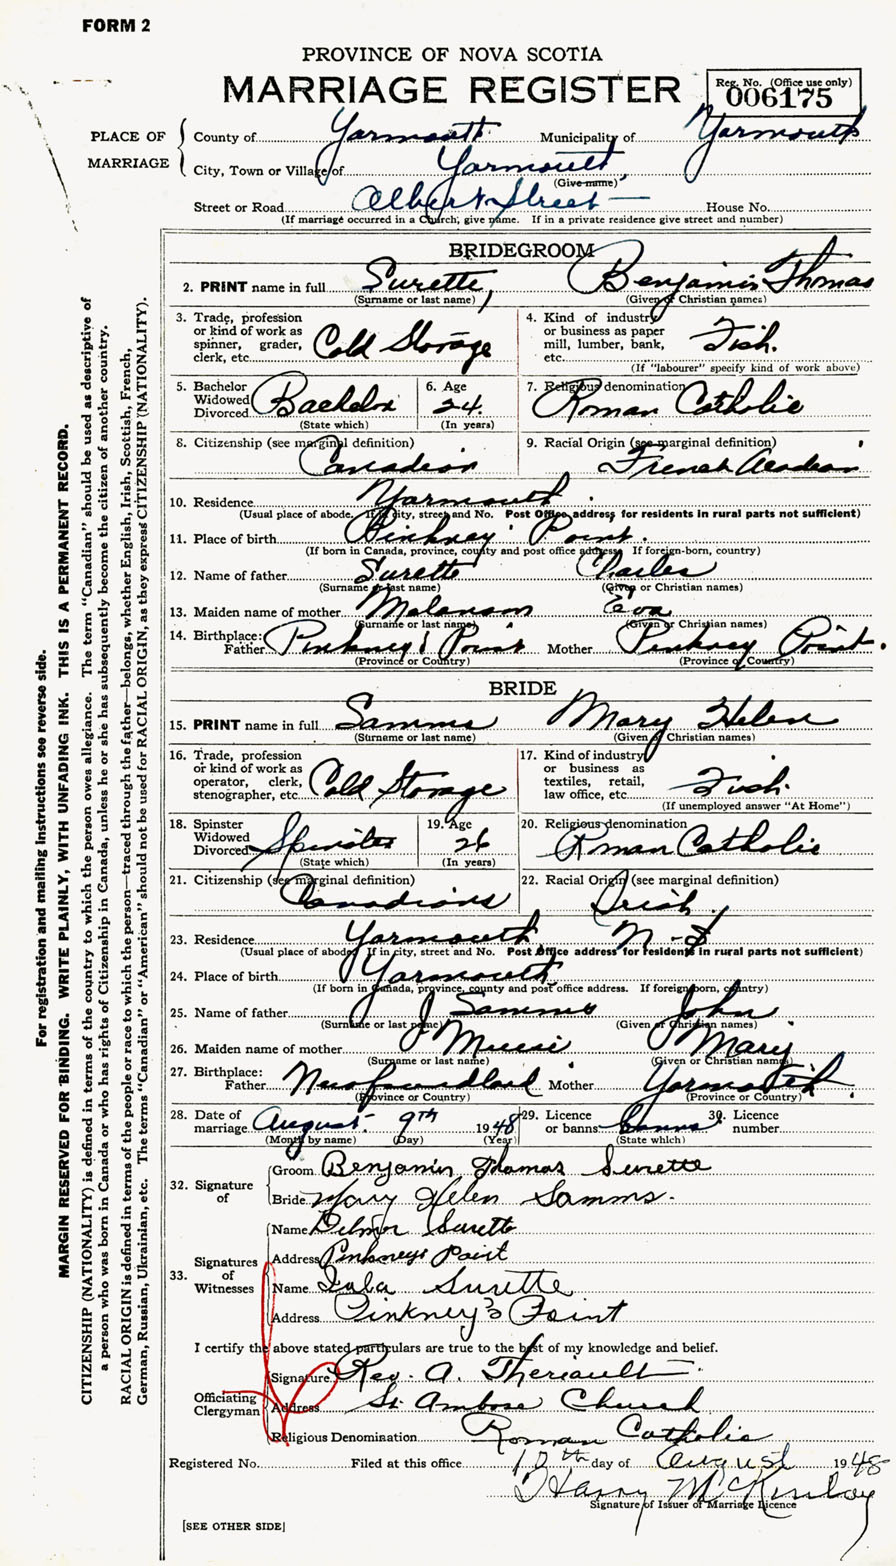 FORM 2
PROVINCE OF NOVA SCOTIA
MARRIAGE REGISTER
Reg. No. (Office use only)
006175
PLACE OF MARRIAGE
County of Yarmouth Municipality of Yarmouth
City, Town or Village of Yarmouth
(Give name)
Street or Road Albert Street House No.
(If marriage occurred in a Church, give name. If in a private residence give street and number)
BRIDEGROOM
2. PRINT name in full Surette, Benjamin Thomas
(Surname or last name) (Given or Christian names)
3. Trade, profession or kind of work as spinner, grader, clerk, etc. Cold Storage
4. Kind of industry or business as paper mill, lumber, bank, etc. Fish.
(If "labourer" specify kind of work above)
5. Bachelor Widowed Divorced Bachelor
(State which)
6. Age 24.
(In years)
7. Religious denomination
Roman Catholic
8. Citizenship (see marginal definition)
Canadian
9. Racial Origin (see marginal definition)
French Acadian
10. Residence Yarmouth.
(Usual place of abode. If in city, street and No. Post Office address for residents in rural parts not sufficient)
11. Place of birth Pinkney Point.
(If born in Canada, province, county and post office address. If foreign-born, country)
12. Name of father Surette Charles
(Surname or last name) (Given or Christian names)
13. Maiden name of mother Melanson Eva
(Surname or last name) (Given or Christian names)
14. Birthplace: Father Pinkney's Point Mother Pinkney Point.
(Province or Country) (Province or Country)
BRIDE
15. PRINT name in full Samms Mary Helen
(Surname or last name) (Given or Christian names)
16. Trade, profession or kind of work as operator, clerk, stenographer, etc. Cold Storage
17. Kind of industry or business as textiles, retail, law office, etc. Fish.
(If unemployed answer "At Home")
18. Spinster Widowed Divorced Spinster
(State which)
19. Age 26
(In years)
20. Religious denomination
Roman Catholic
21. Citizenship (see marginal definition)
Canadians
22. Racial Origin (see marginal definition)
Irish.
23. Residence Yarmouth N-S
(Usual place of abode. If in city, street and No. Post Office address for residents in rural parts not sufficient)
24. Place of birth Yarmouth
(If born in Canada, province, county and post office address. If foreign born, country)
25. Name of father Samms John
(Surname or last name) (Given or Christian names)
26. Maiden name of mother Mary
(Surname or last name) (Given or Christian names)
27. Birthplace: Father Newfoundland Mother Yarmouth.
(Province or Country) (Province or Country)
28. Date of marriage August 9th 1948
(Month by name) (Day) (Year)
29. Licence or banns banns
(State which)
30. Licence number
32. Signature of
Groom Benjamin Thomas Surette
Bride Mary Helen Samms.
33. Signatures of Witnesses
Name Delmar Surette
Address Pinkneys Point
Name Surette
Address Pinkney's Point
I certify the above stated particulars are true to the best of my knowledge and belief.
Officiating Clergyman
Signature Rev. A. Theriault
Address St. Ambrose Church
Religious Denomination Roman Catholic
Registered No. Filed at this office 10th day of August 1948
Harry McKinlay
Signature of Issuer of Marriage Licence
[SEE OTHER SIDE]
For registration and mailing instructions see reverse side.
MARGIN RESERVED FOR BINDING. WRITE PLAINLY, WITH UNFADING INK. THIS IS A PERMANENT RECORD.
CITIZENSHIP (NATIONALITY) is defined in terms of the country to which the person owes allegiance. The term "Canadian" should be used as descriptive of
a person who was born in Canada or who has rights of Citizenship in Canada, unless he or she has subsequently become the citizen of another country.
RACIAL ORIGIN is defined in terms of the people or race to which the person—traced through the father—belongs, whether English, Irish, Scottish, French,
German, Russian, Ukrainian, etc. The terms "Canadian" or "American" should not be used for RACIAL ORIGIN, as they express CITIZENSHIP (NATIONALITY).